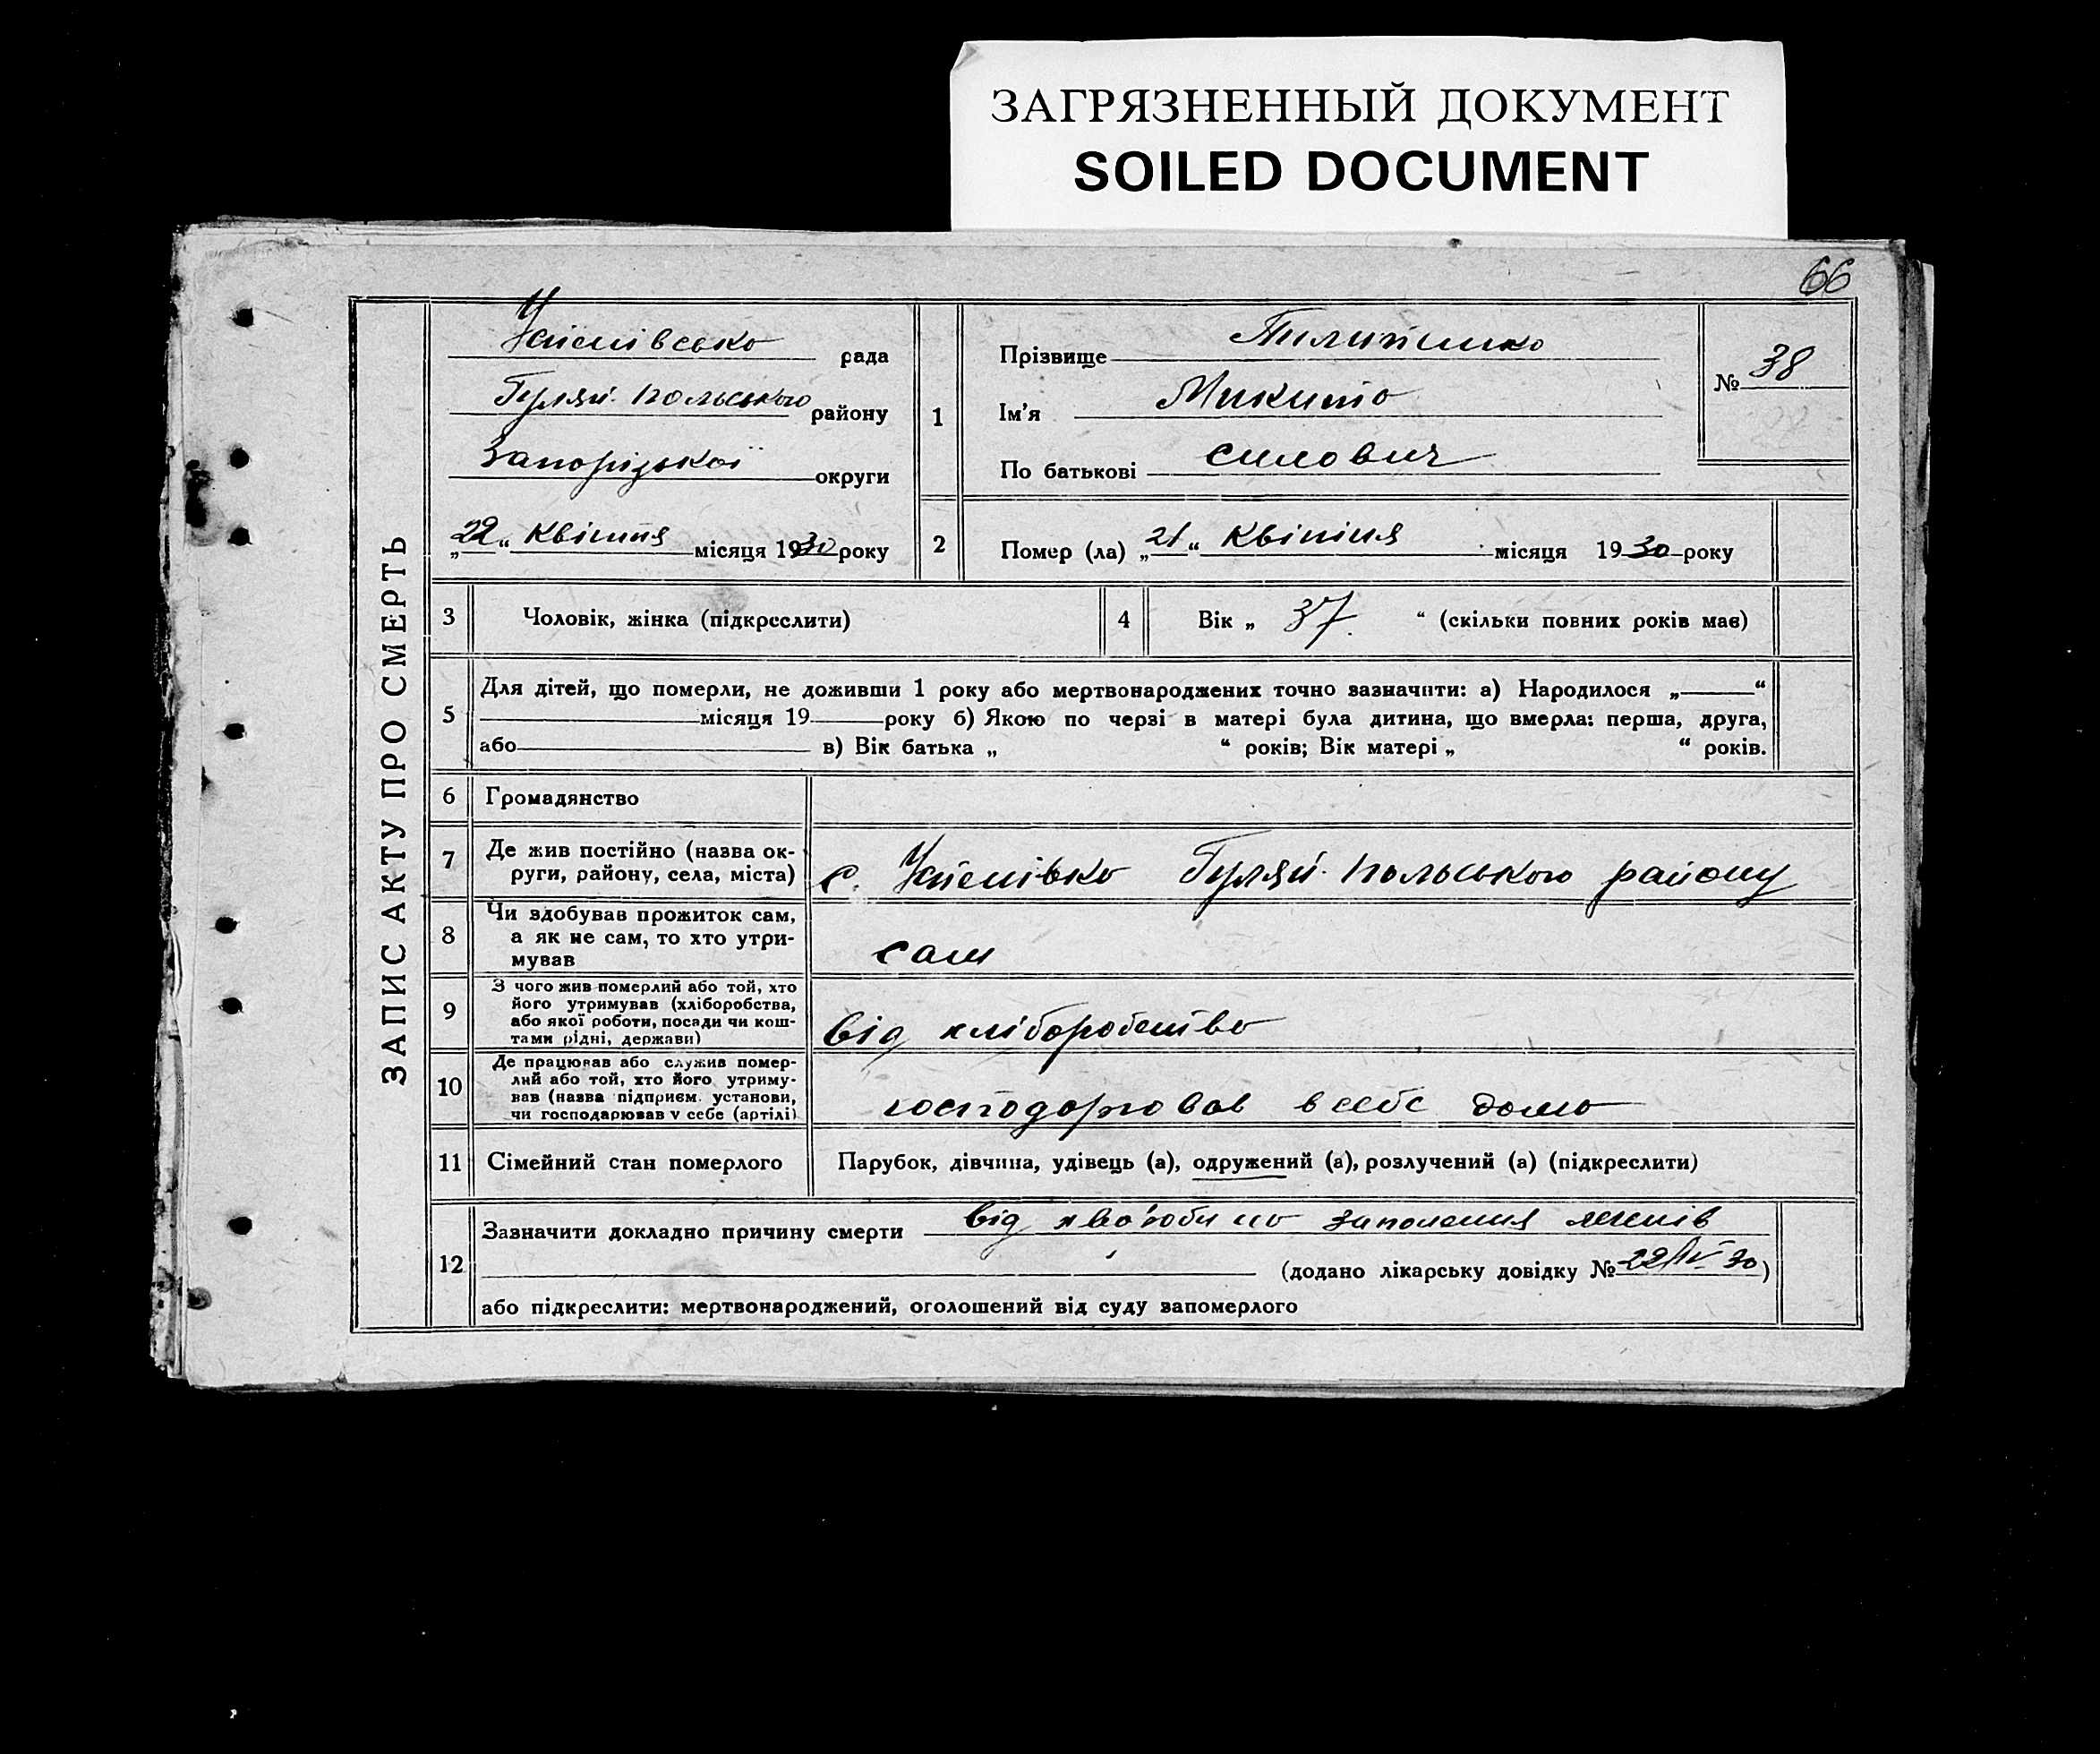 ЗАГРЯЗНЕННЫЙ ДОКУМЕНТ
SOILED DOCUMENT
66
ЗАПИС АКТУ ПРО СМЕРТЬ
Успенівсько рада
Гуляй-Польського району
Запорізької округи
„22“ Квітня місяця 1930 року
1
Прізвище
Ім'я Микито
По батькові Силович
№ 38
2
Помер (ла) „21“ Квітня місяця 1930 року
3 Чоловік, жінка (підкреслити)
4 Вік „ 37. “ (скільки повних років має)
5
Для дітей, що померли, не доживши 1 року або мертвонароджених точно зазначити: а) Народилося „ “
місяця 19 року б) Якою по черзі в матері була дитина, що вмерла: перша, друга,
або в) Вік батька „ “ років; Вік матері „ “ років.
6 Громадянство
7 Де жив постійно (назва ок-
руги, району, села, міста)
с. Успенівко Гуляй-Польського району
8 Чи здобував прожиток сам,
а як не сам, то хто утри-
мував
сам
9 З чого жив померлий або той, хто
його утримував (хліборобства,
або якої роботи, посади чи кош-
тами рідні, держави)
від хліборобство
10 Де працював або служив помер-
лий або той, хто його утриму-
вав (назва підприєм. установи,
чи господарював у себе (артілі)
господорював в себе домо
11 Сімейний стан померлого
Парубок, дівчина, удівець (а), одружений (а), розлучений (а) (підкреслити)
12
Зазначити докладно причину смерти від хвороби но заполення легенів
(додано лікарську довідку № 22/IV 30)
або підкреслити: мертвонароджений, оголошений від суду запомерлого